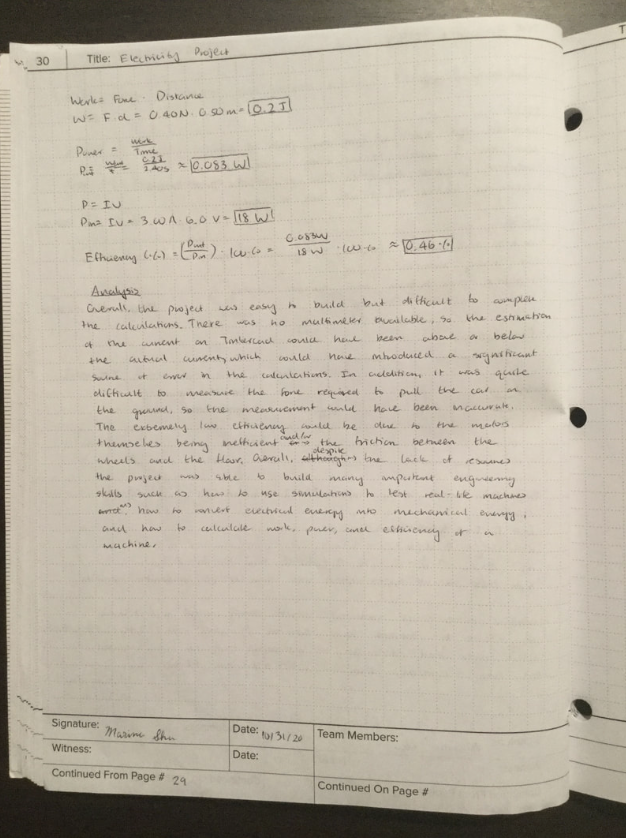 30
Title: Electricity Project
Work = Force · Distance
W = F·d = 0.40N · 0.50m = 0.2J
Power = Work / Time
Pout = Work / t = 0.2J / 2.40s ≈ 0.083 W
P = IV
Pin = IV = 3.00 A · 6.0 V = 18 W
Efficiency (%) = (Pout / Pin) · 100% = 0.083W / 18 W · 100% ≈ 0.46 %
Analysis
Overall, the project was easy to build but difficult to complete
the calculations. There was no multimeter available, so the estimation
of the current on Tinkercad could have been above or below
the actual current, which could have introduced a significant
source of error in the calculations. In addition, it was quite
difficult to measure the force required to pull the car on
the ground, so the measurement could have been inaccurate.
The extremely low efficiency could be due to the motors
themselves being inefficient and/or the friction between the
wheels and the floor. Overall, despite the lack of resources
the project was able to build many important engineering
skills such as how to use simulations to test real-life machines
how to convert electrical energy into mechanical energy,
and how to calculate work, power, and efficiency of a
machine.
Signature: Marine Shu
Date: 10/31/20
Team Members:
Witness:
Date:
Continued From Page # 29
Continued On Page #